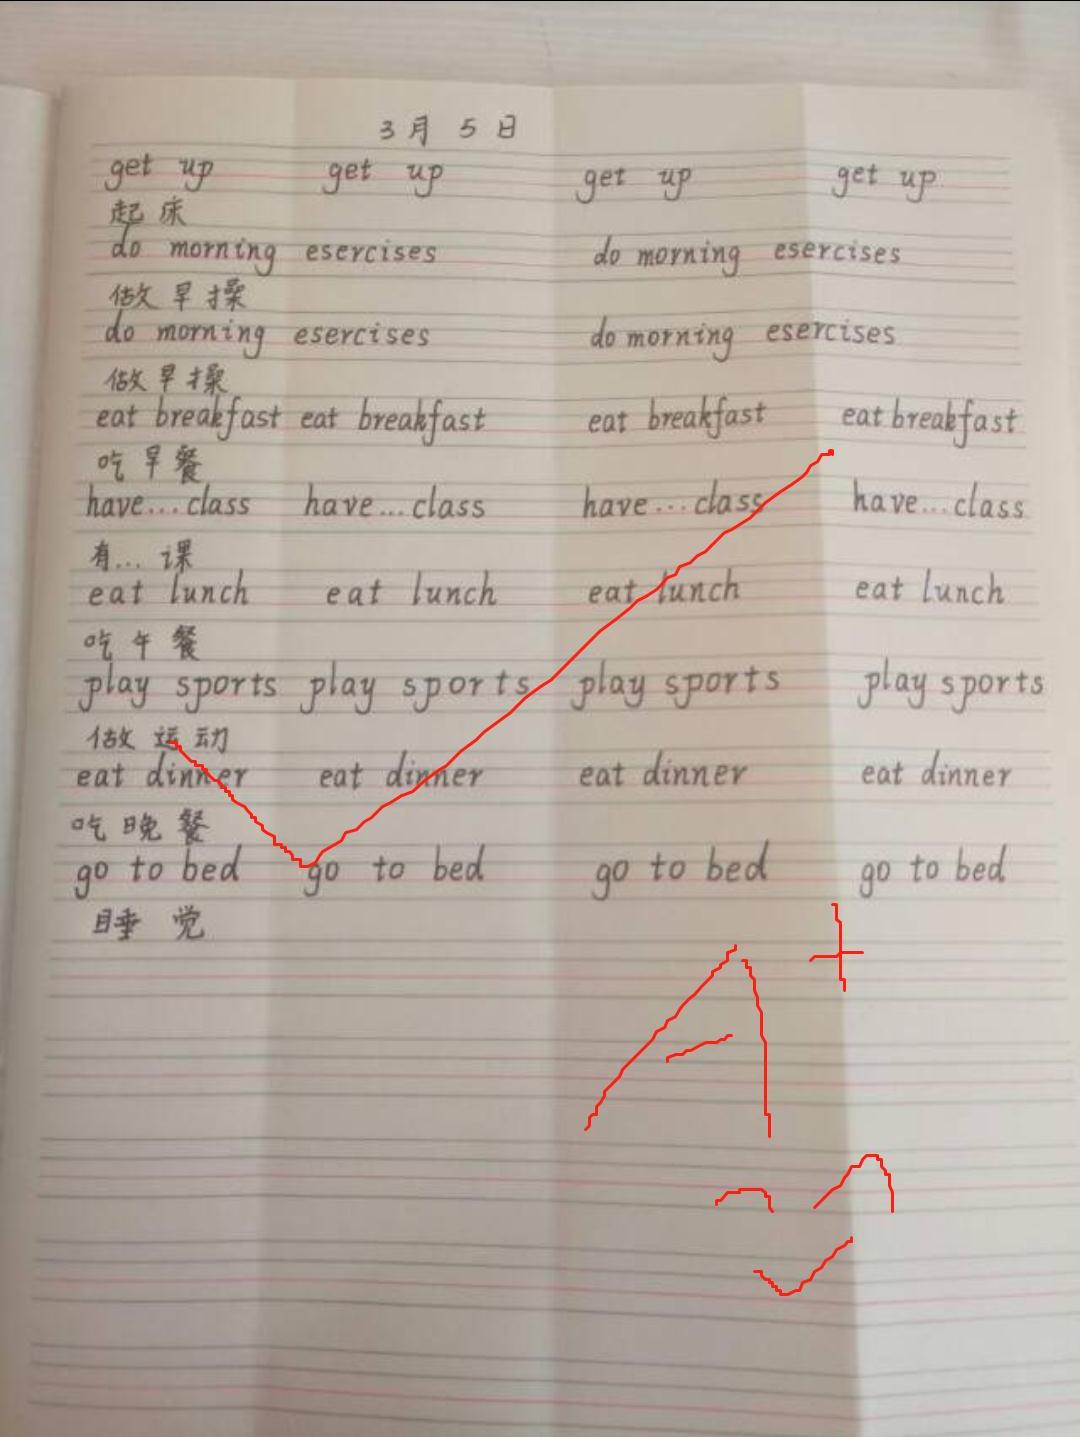 3月5日
get up get up get up get up
起床
do morning esercises do morning esercises
做早操
do morning esercises do morning esercises
做早操
eat breakfast eat breakfast eat breakfast eat breakfast
吃早餐
have...class have...class have...class have...class
有...课
eat lunch eat lunch eat lunch eat lunch
吃午餐
play sports play sports play sports play sports
做运动
eat dinner eat dinner eat dinner eat dinner
吃晚餐
go to bed go to bed go to bed go to bed
睡觉
A+